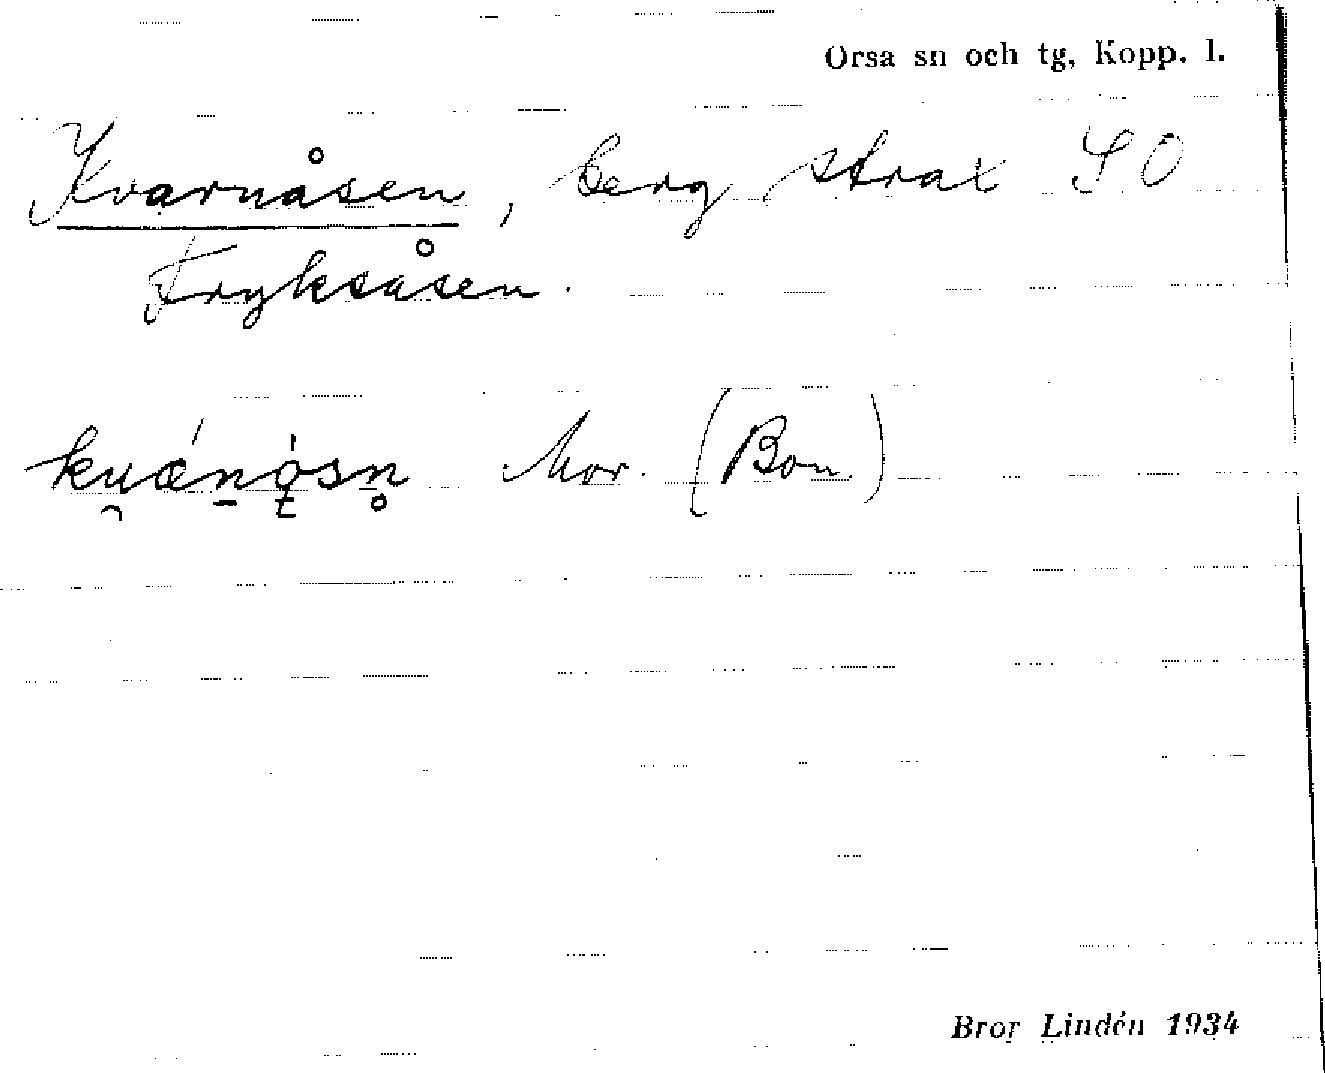 Orsa sn och tg, Kopp. l.
Kvarnåsen, berg strax SO
Fryksåsen.
Mor. (Bon.)
Bror Lindén 1934